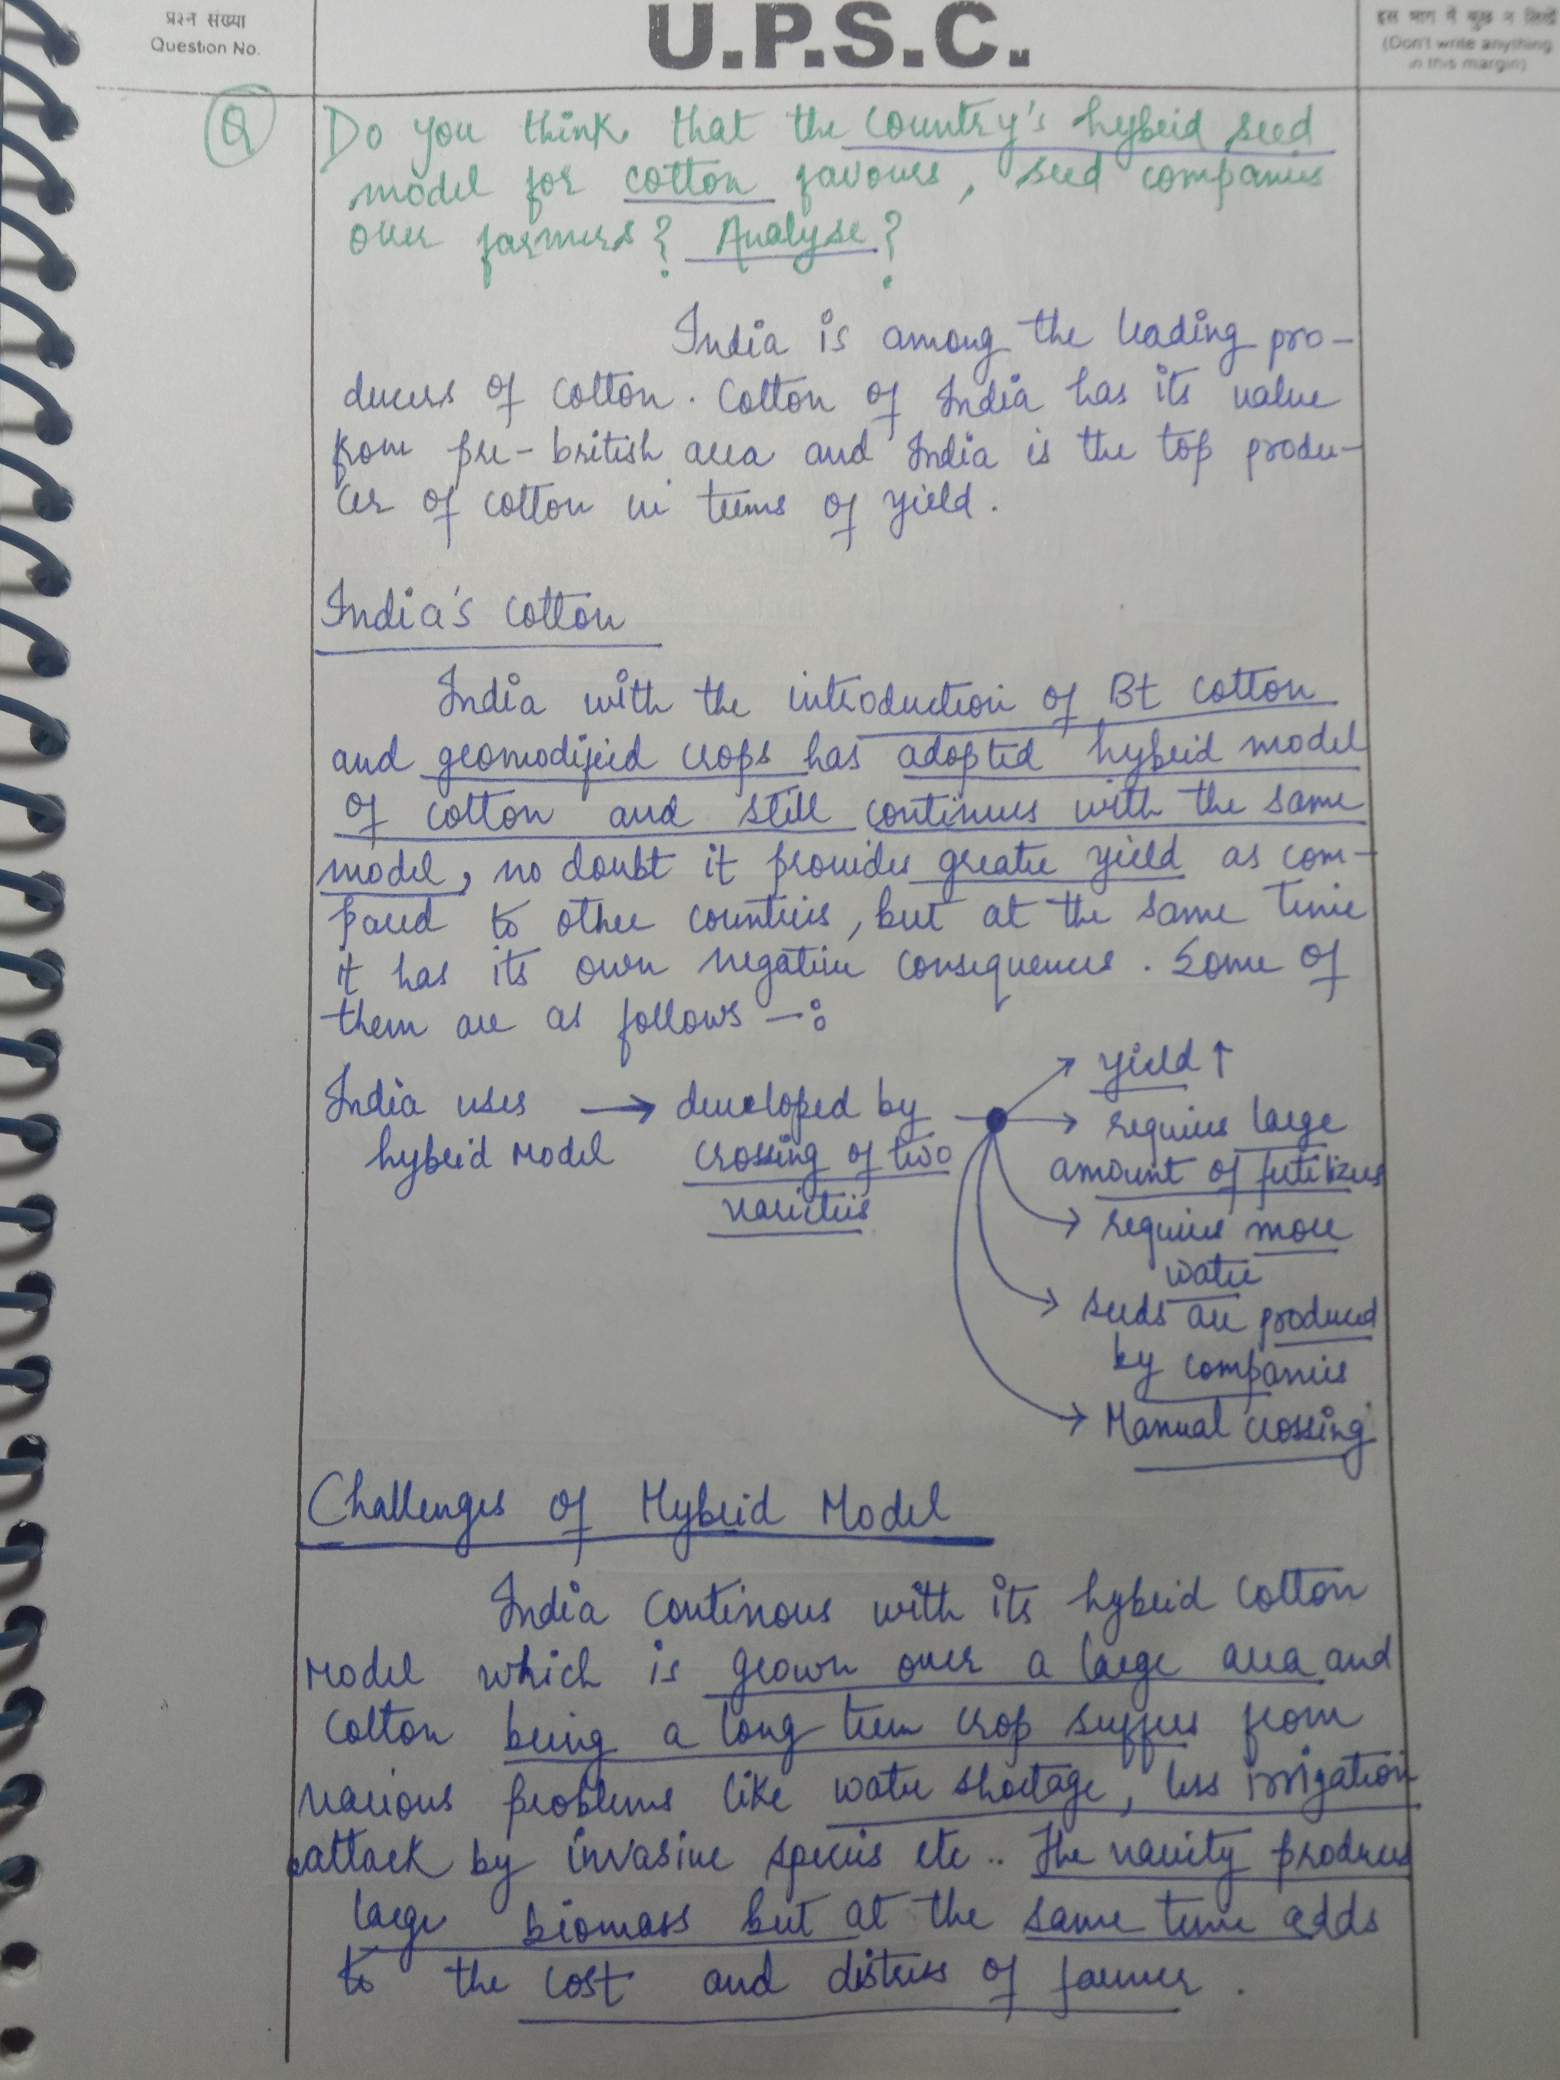 प्रश्न संख्या
Question No.
U.P.S.C.
इस भाग में कुछ न लिखें
(Don't write anything
in this margin)
Q
Do you think that the country's hybrid seed
model for cotton favours, seed companies
over farmers? Analyse?
India is among the leading pro-
ducers of cotton. Cotton of India has its value
from pre-british area and India is the top produ-
cer of cotton in terms of yield.
India's cotton
India with the introduction of Bt cotton
and geomodified crops has adopted hybrid model
of cotton and still continues with the same
model, no doubt it provides greater yield as com-
pared to other countries, but at the same time
it has its own negative consequences. Some of
them are as follows -:
India uses → developed by
hybrid model crossing of two
varieties
yield ↑
requires large
amount of fertilizers
requires more
water
seeds are produced
by companies
Manual crossing
Challenges of Hybrid Model
India continous with its hybrid cotton
model which is grown over a large area and
cotton being a long term crop suffers from
various problems like water shortage, less irrigation
attack by invasive species etc.. The varity produces
large biomass but at the same time adds
to the cost and distress of farmer.